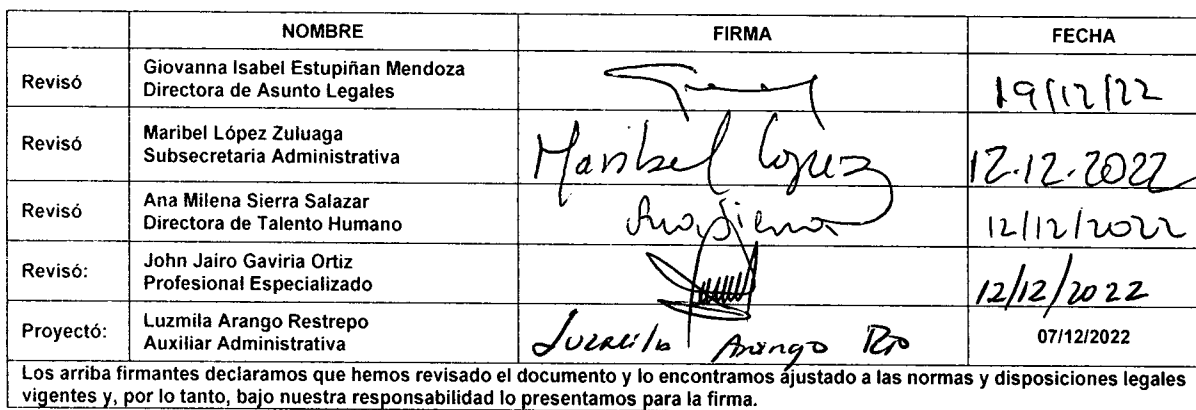 NOMBRE FIRMA FECHA
Revisó Giovanna Isabel Estupiñan Mendoza
Directora de Asunto Legales 19/12/22
Revisó Maribel López Zuluaga
Subsecretaria Administrativa Maribel López 12.12.2022
Revisó Ana Milena Sierra Salazar
Directora de Talento Humano AnaSierra 12/12/2022
Revisó: John Jairo Gaviria Ortiz
Profesional Especializado 12/12/2022
Proyectó: Luzmila Arango Restrepo
Auxiliar Administrativa Luzmila Arango Rpo 07/12/2022
Los arriba firmantes declaramos que hemos revisado el documento y lo encontramos ajustado a las normas y disposiciones legales
vigentes y, por lo tanto, bajo nuestra responsabilidad lo presentamos para la firma.